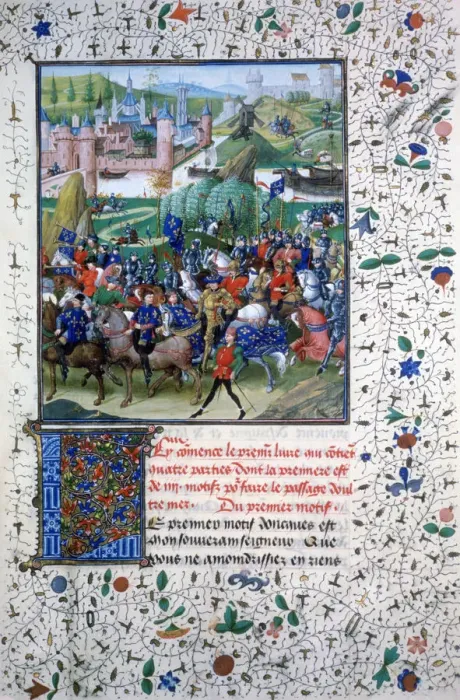 Cy cōmence le premr̄ liure qui cōtiēt
quatre parties dont la premiere est
de iiij. motifz por̄ faire le passage doul
tre mer. Du premier motif.
Le premier motif doncques est
mon souuerain seigneur Que
vous ne amondrissiez en riens